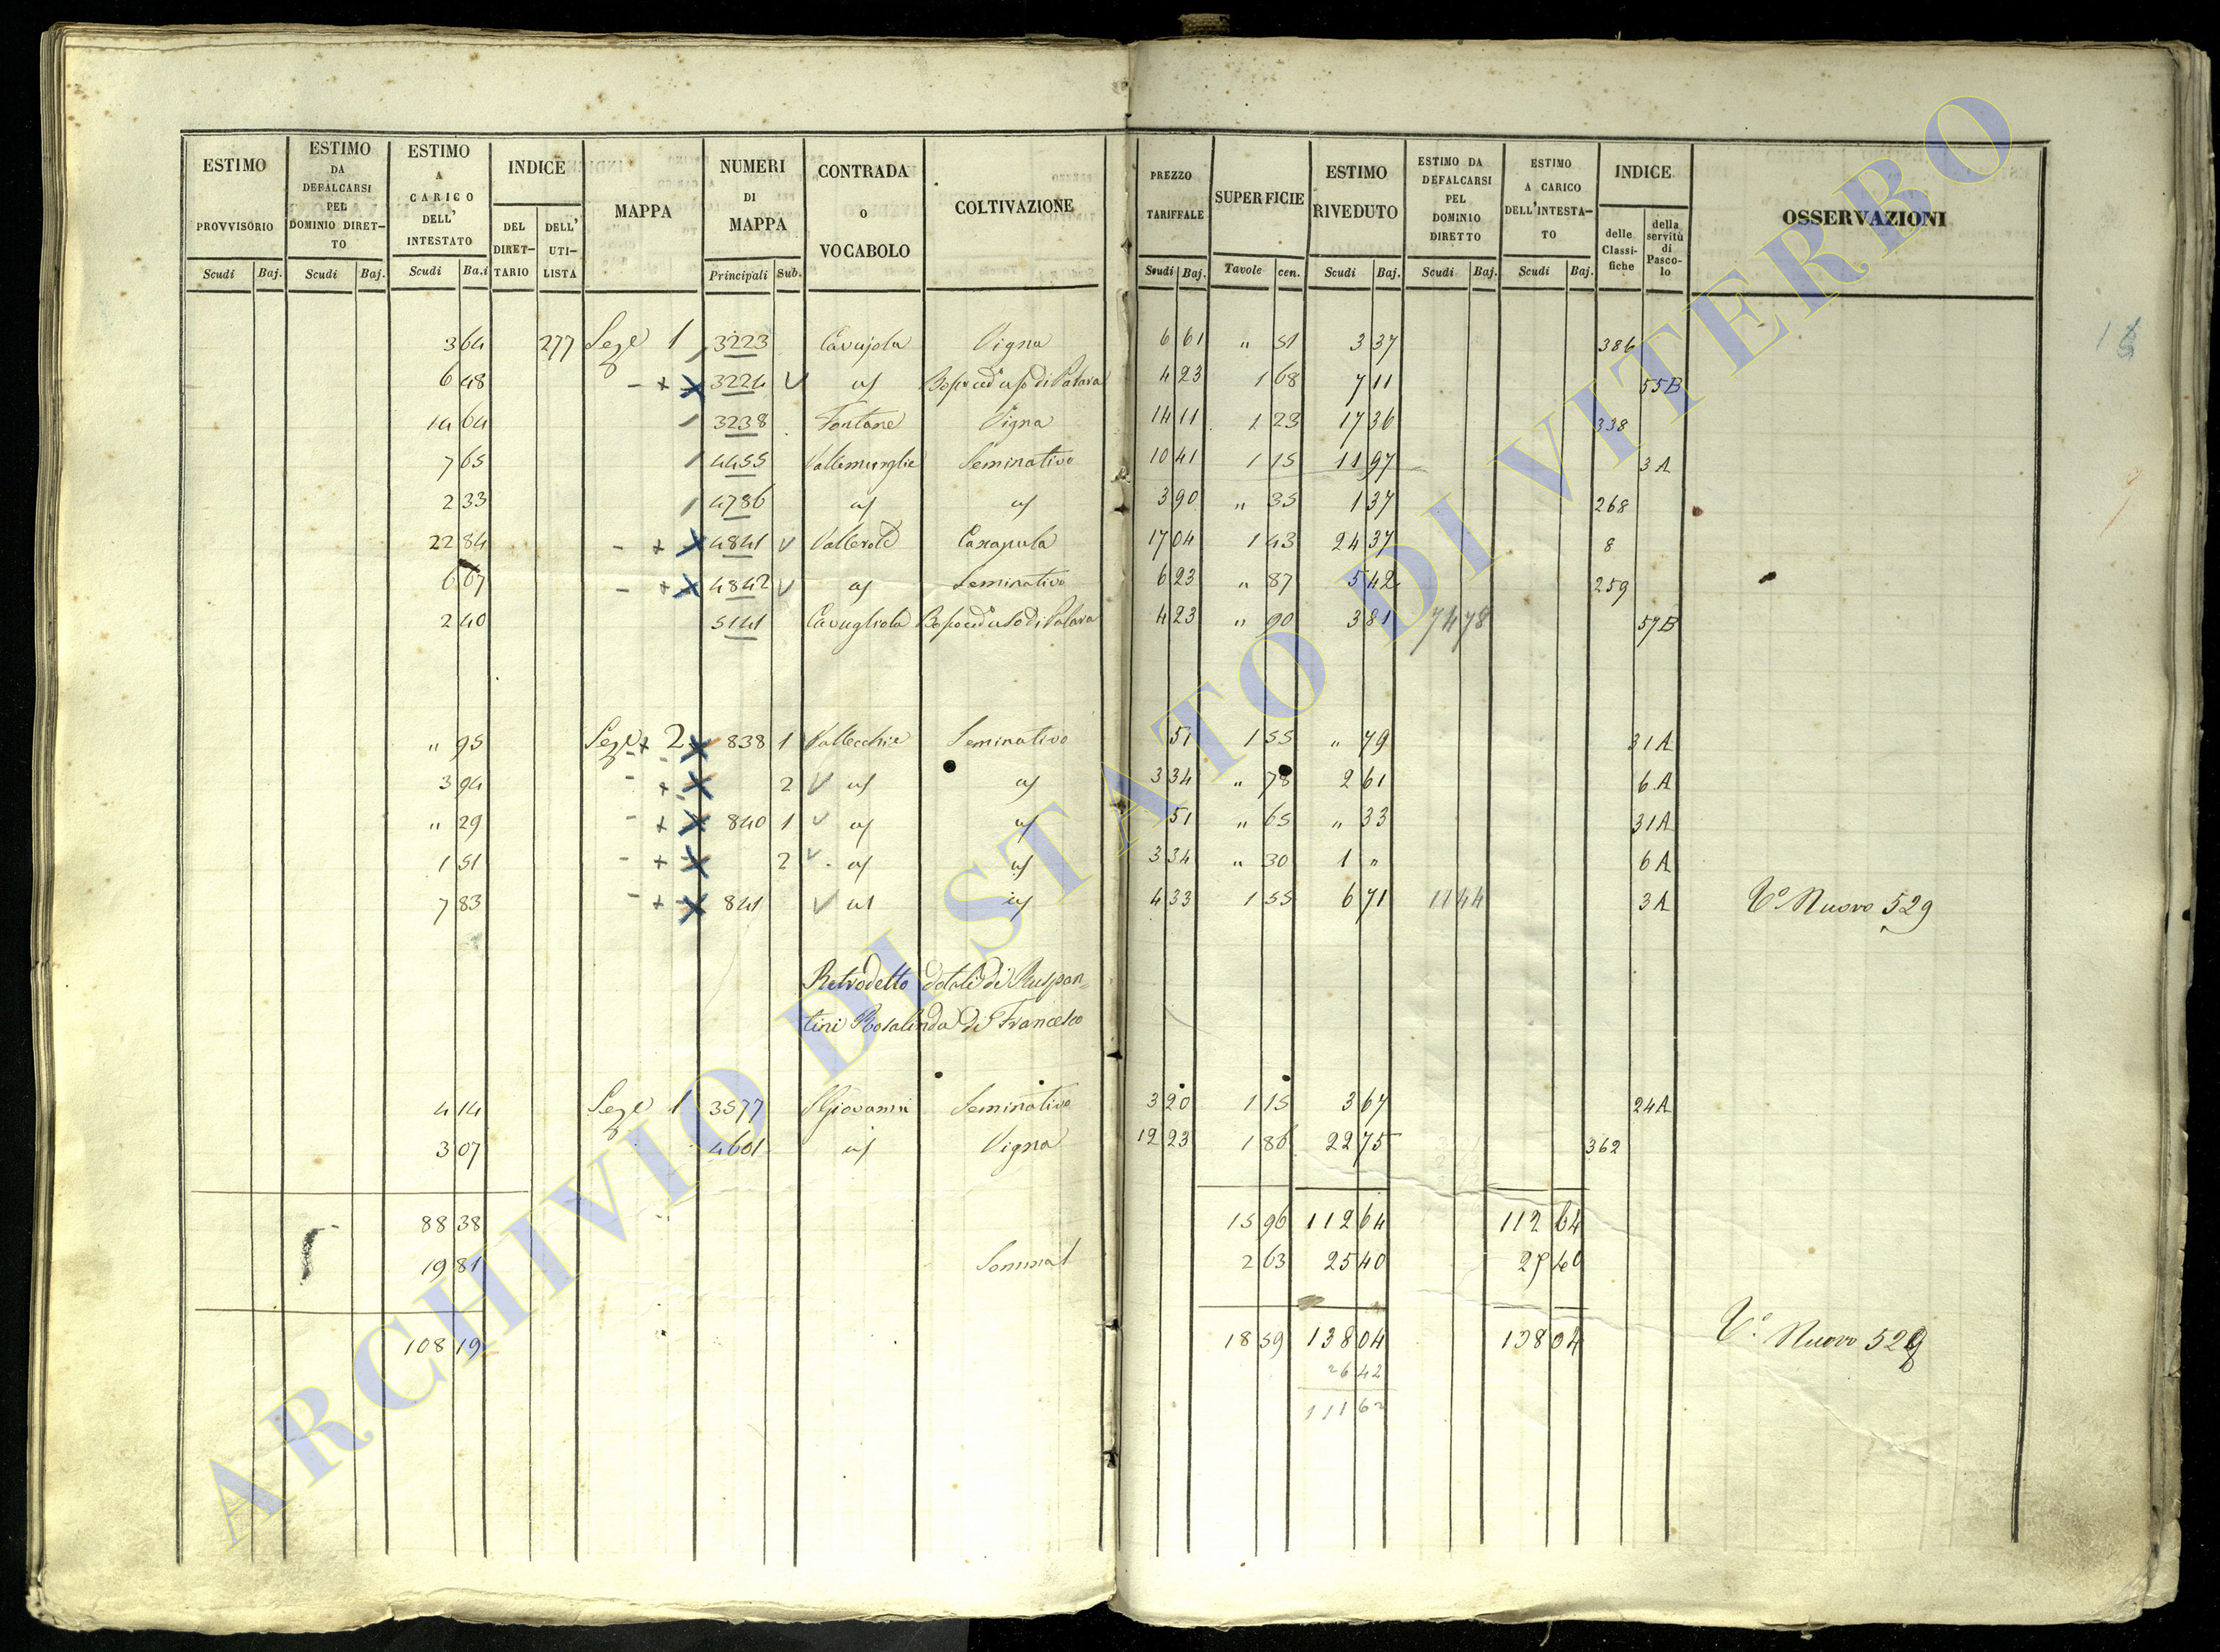 ESTIMO PROVVISORIO Scudi Baj.
ESTIMO DA DEFALCARSI PEL DOMINIO DIRETTO Scudi Baj.
ESTIMO A CARICO DELL' INTESTATO Scudi Ba.i
INDICE DEL DIRETTARIO DELL' UTILISTA
MAPPA
NUMERI DI MAPPA Principali Sub.
CONTRADA O VOCABOLO
COLTIVAZIONE
PREZZO TARIFFALE Scudi Baj.
SUPERFICIE Tavole cen.
ESTIMO RIVEDUTO Scudi Baj.
ESTIMO DA DEFALCARSI PEL DOMINIO DIRETTO Scudi Baj.
ESTIMO A CARICO DELL'INTESTATO Scudi Baj.
INDICE delle Classifiche della servitù di Pascolo
OSSERVAZIONI
3 64 277 Seze 1 3223 Cavajola Vigna 6 61 " 51 3 37 386
6 48 3224 Bosco ced° uso di Palara 4 23 1 68 7 11 55B
14 64 3238 Fontane Vigna 14 11 1 23 17 36 338
7 65 4455 Seminativo 10 41 1 15 11 97 3A
2 33 4786 3 90 " 35 1 37 268
22 84 4841 Canapula 17 04 1 43 24 37 8
6 67 4842 Seminativo 6 23 " 87 5 42 259
2 40 5141 Cavugliola Bosco ced° uso di Palara 4 23 " 90 3 81 74 78 57B
" 95 Seze 2 838 1 Vallecchie Seminativo 51 1 55 " 79 31A
3 94 2 3 34 " 78 2 61 6A
" 29 840 1 51 " 65 " 33 31A
1 51 2 3 34 " 30 1 " 6A
7 83 841 4 33 1 55 6 71 11 44 3A V° Nuovo 529
Retrodetto dotali di Ruspan=
tini Rosalinda di Francesco
4 14 Seze 1 3577 S Giovanni Seminativo 3 20 1 15 3 67 24A
3 07 4601 Vigna 12 23 1 86 22 75 362
88 38 15 96 112 64 112 64
19 81 2 63 25 40 25 40
108 19 18 59 138 04 138 04 V° Nuovo 529
26 42
111 62
ARCHIVIO DI STATO DI VITERBO